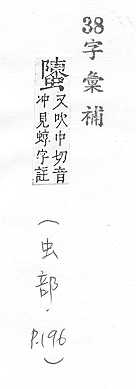 38字彙補
又吹中切音
冲見字註
(虫部.P.196)